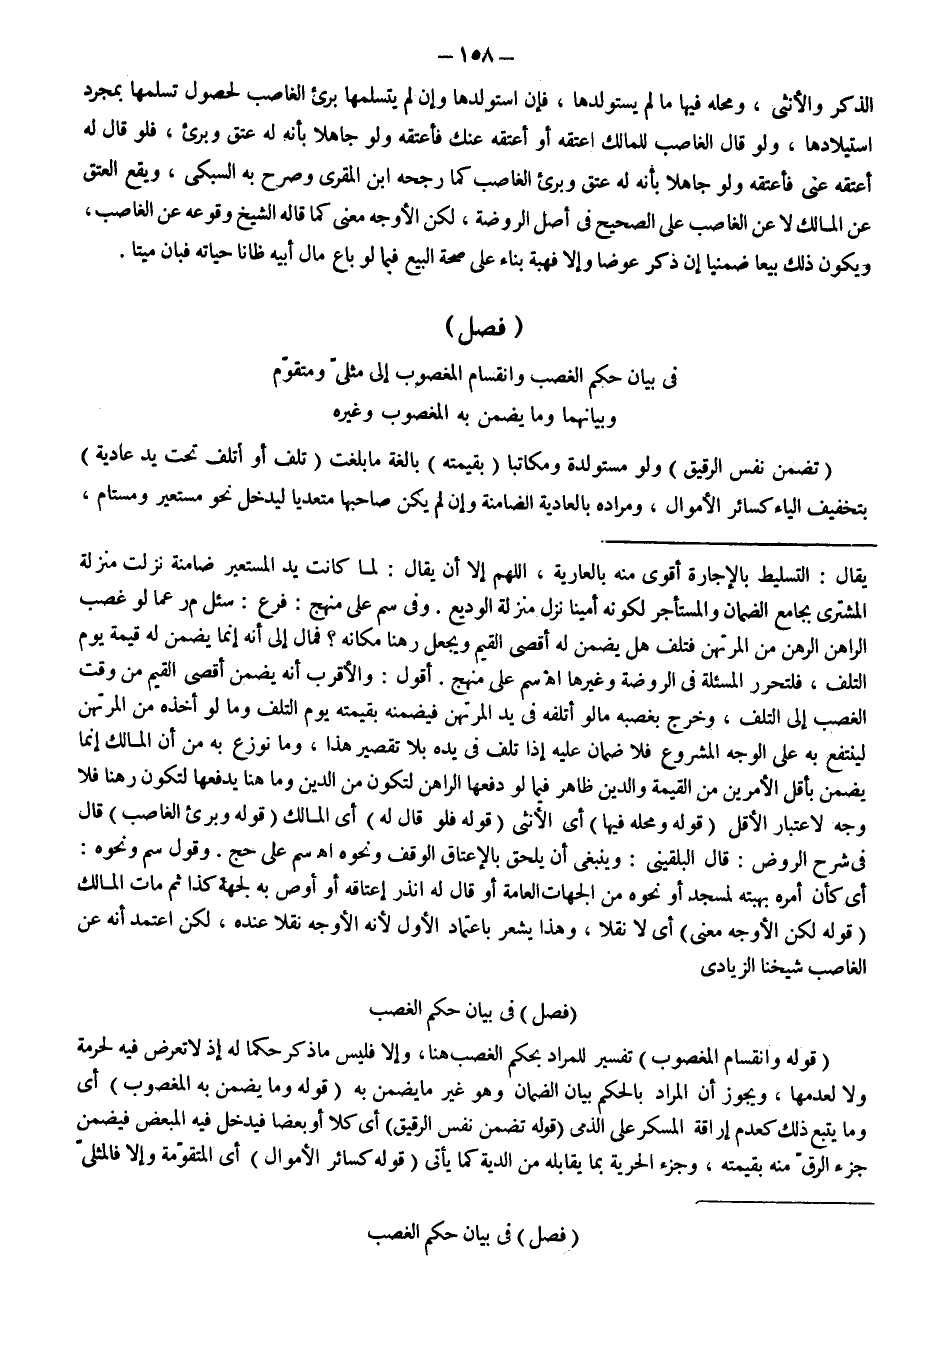 — ١٥٨ —
الذكر والأنثى ، ومحله فيها ما لم يستولدها ، فإن استولدها وإن لم يتسلمها برئ الغاصب لحصول تسلمها بمجرد
استيلادها ، ولو قال الغاصب للمالك اعتقه أو أعتقه عنك فأعتقه ولو جاهلا بأنه له عتق وبرئ ، فلو قال له
أعتقه عنى فأعتقه ولو جاهلا بأنه له عتق وبرئ الغاصب كما رجحه ابن المقرى وصرح به السبكى ، ويقع العتق
عن المالك لا عن الغاصب على الصحيح فى أصل الروضة ، لكن الأوجه معنى كما قاله الشيخ وقوعه عن الغاصب ،
ويكون ذلك بيعا ضمنيا إن ذكر عوضا وإلا فهبة بناء على صحة البيع فيما لو باع مال أبيه ظانا حياته فبان ميتا .
( فصل )
فى بيان حكم الغصب وانقسام المغصوب إلى مثلىّ ومتقوّم
وبيانهما وما يضمن به المغصوب وغيره
( تضمن نفس الرقيق ) ولو مستولدة ومكاتبا ( بقيمته ) بالغة مابلغت ( تلف أو أتلف تحت يد عادية )
بتخفيف الياء كسائر الأموال ، ومراده بالعادية الضامنة وإن لم يكن صاحبها متعديا ليدخل نحو مستعير ومستام ،
يقال : التسليط بالإجارة أقوى منه بالعارية ، اللهم إلا أن يقال : لما كانت يد المستعير ضامنة نزلت منزلة
المشترى بجامع الضمان والمستأجر لكونه أمينا نزل منزلة الوديع . وفى سم على منهج : فرع : سئل مر عما لو غصب
الراهن الرهن من المرتهن فتلف هل يضمن له أقصى القيم ويجعل رهنا مكانه ؟ فمال إلى أنه إنما يضمن له قيمة يوم
التلف ، فلتحرر المسئلة فى الروضة وغيرها اهـ سم على منهج . أقول : والأقرب أنه يضمن أقصى القيم من وقت
الغصب إلى التلف ، وخرج بغصبه مالو أتلفه فى يد المرتهن فيضمنه بقيمته يوم التلف وما لو أخذه من المرتهن
لينتفع به على الوجه المشروع فلا ضمان عليه إذا تلف فى يده بلا تقصير هذا ، وما نوزع به من أن المالك إنما
يضمن بأقل الأمرين من القيمة والدين ظاهر فيما لو دفعها الراهن لتكون من الدين وما هنا يدفعها لتكون رهنا فلا
وجه لاعتبار الأقل ( قوله ومحله فيها ) أى الأنثى ( قوله فلو قال له ) أى المالك ( قوله وبرئ الغاصب ) قال
فى شرح الروض : قال البلقينى : وينبغى أن يلحق بالإعتاق الوقف ونحوه اهـ سم على حج . وقول سم ونحوه :
أى كأن أمره بهبته لمسجد أو نحوه من الجهات العامة أو قال له انذر إعتاقه أو أوص به لجهة كذا ثم مات المالك
( قوله لكن الأوجه معنى ) أى لا نقلا ، وهذا يشعر باعتماد الأول لأنه الأوجه نقلا عنده ، لكن اعتمد أنه عن
الغاصب شيخنا الزيادى
( فصل ) فى بيان حكم الغصب
( قوله وانقسام المغصوب ) تفسير للمراد بحكم الغصب هنا ، وإلا فليس ماذكر حكما له إذ لاتعرض فيه لحرمة
ولا لعدمها ، ويجوز أن المراد بالحكم بيان الضمان وهو غير مايضمن به ( قوله وما يضمن به المغصوب ) أى
وما يتبع ذلك كعدم إراقة المسكر على الذمى ( قوله تضمن نفس الرقيق ) أى كلا أو بعضا فيدخل فيه المبعض فيضمن
جزء الرقّ منه بقيمته ، وجزء الحرية بما يقابله من الدية كما يأتى ( قوله كسائر الأموال ) أى المتقوّمة وإلا فالمثلىّ
( فصل ) فى بيان حكم الغصب